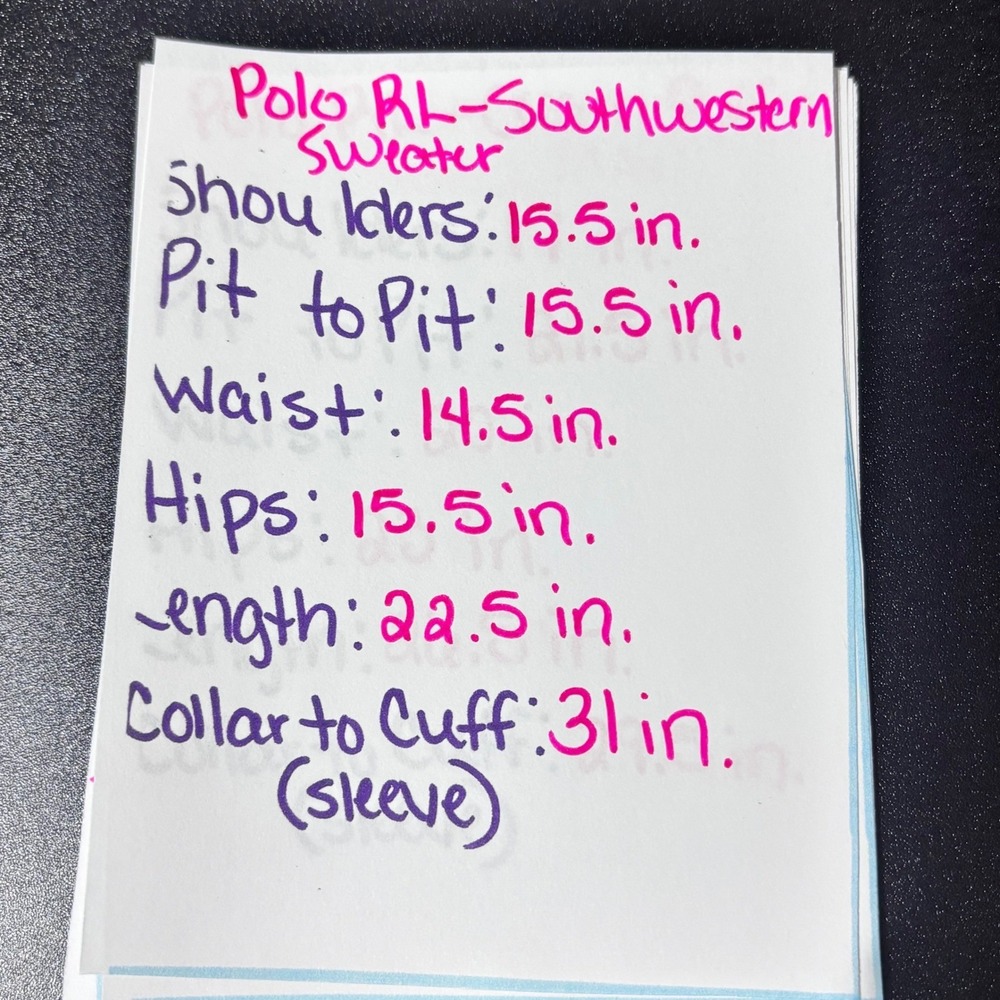 Polo RL-Southwestern
Sweater
Shoulders: 15.5 in.
Pit to Pit: 15.5 in.
Waist: 14.5 in.
Hips: 15.5 in.
Length: 22.5 in.
Collar to Cuff: 31 in.
(sleeve)